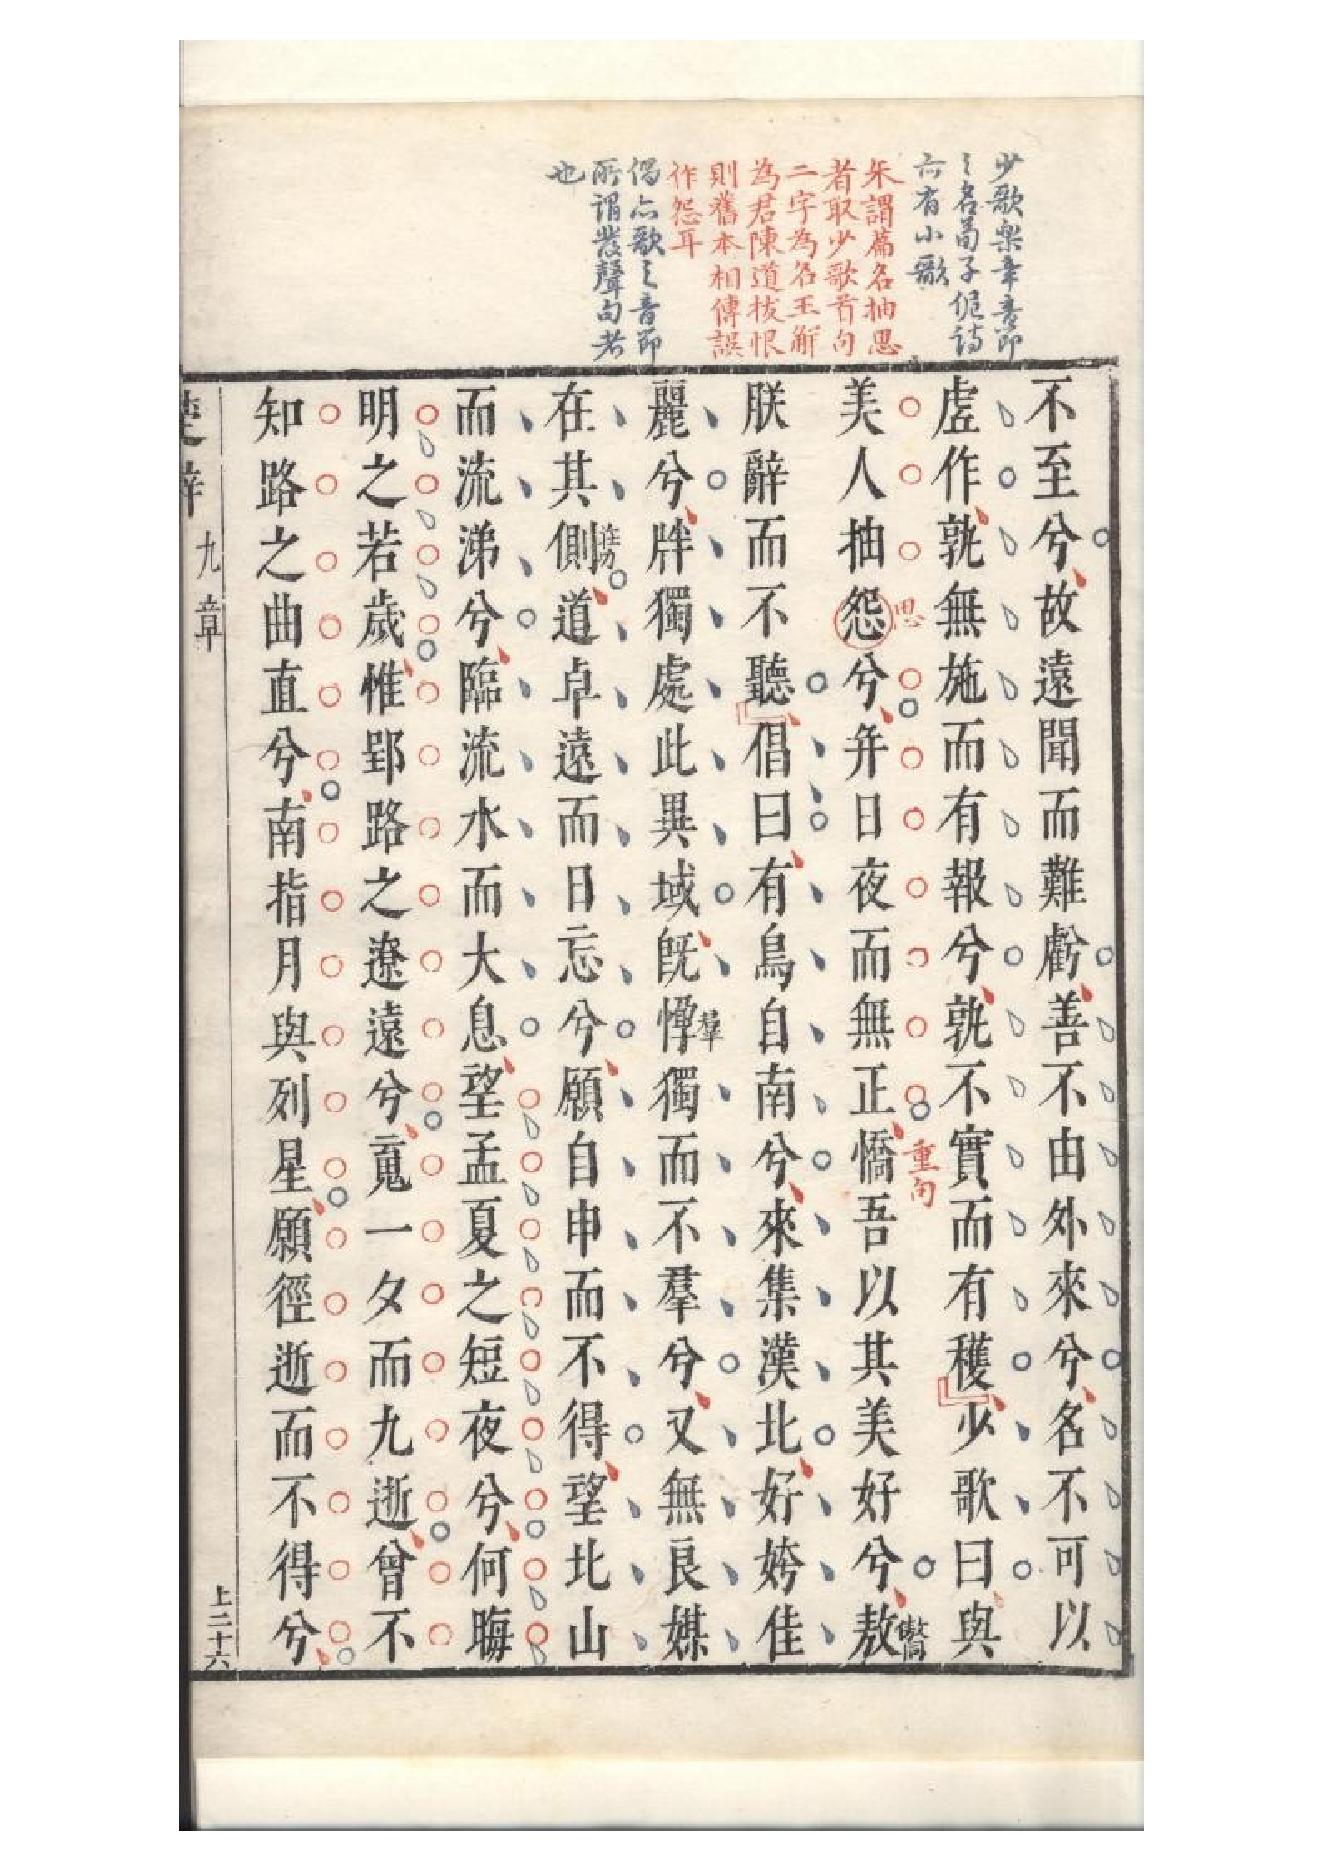 少歌樂章音節
之名荀子佹詩
亦有小歌
朱謂篇名抽思
者取少歌首句
二字為名王解
為君陳道拔恨
則舊本相傳誤
作怨耳
倡亦歌之音節
所謂發聲句者
也
不至兮故遠聞而難虧善不由外來兮名不可以
虛作孰無施而有報兮孰不實而有穫少歌曰與
美人抽怨兮并日夜而無正憍吾以其美好兮敖傲同
思
重句
朕辭而不聽倡曰有鳥自南兮來集漢北好姱佳
麗兮牉獨處此異域既惸㷀獨而不羣兮又無良媒
在其側道卓遠而日忘兮願自申而不得望北山
而流涕兮臨流水而大息望孟夏之短夜兮何晦
明之若歲惟郢路之遼遠兮䰟一夕而九逝曾不
知路之曲直兮南指月與列星願徑逝而不得兮
楚辭 九章 上二十六